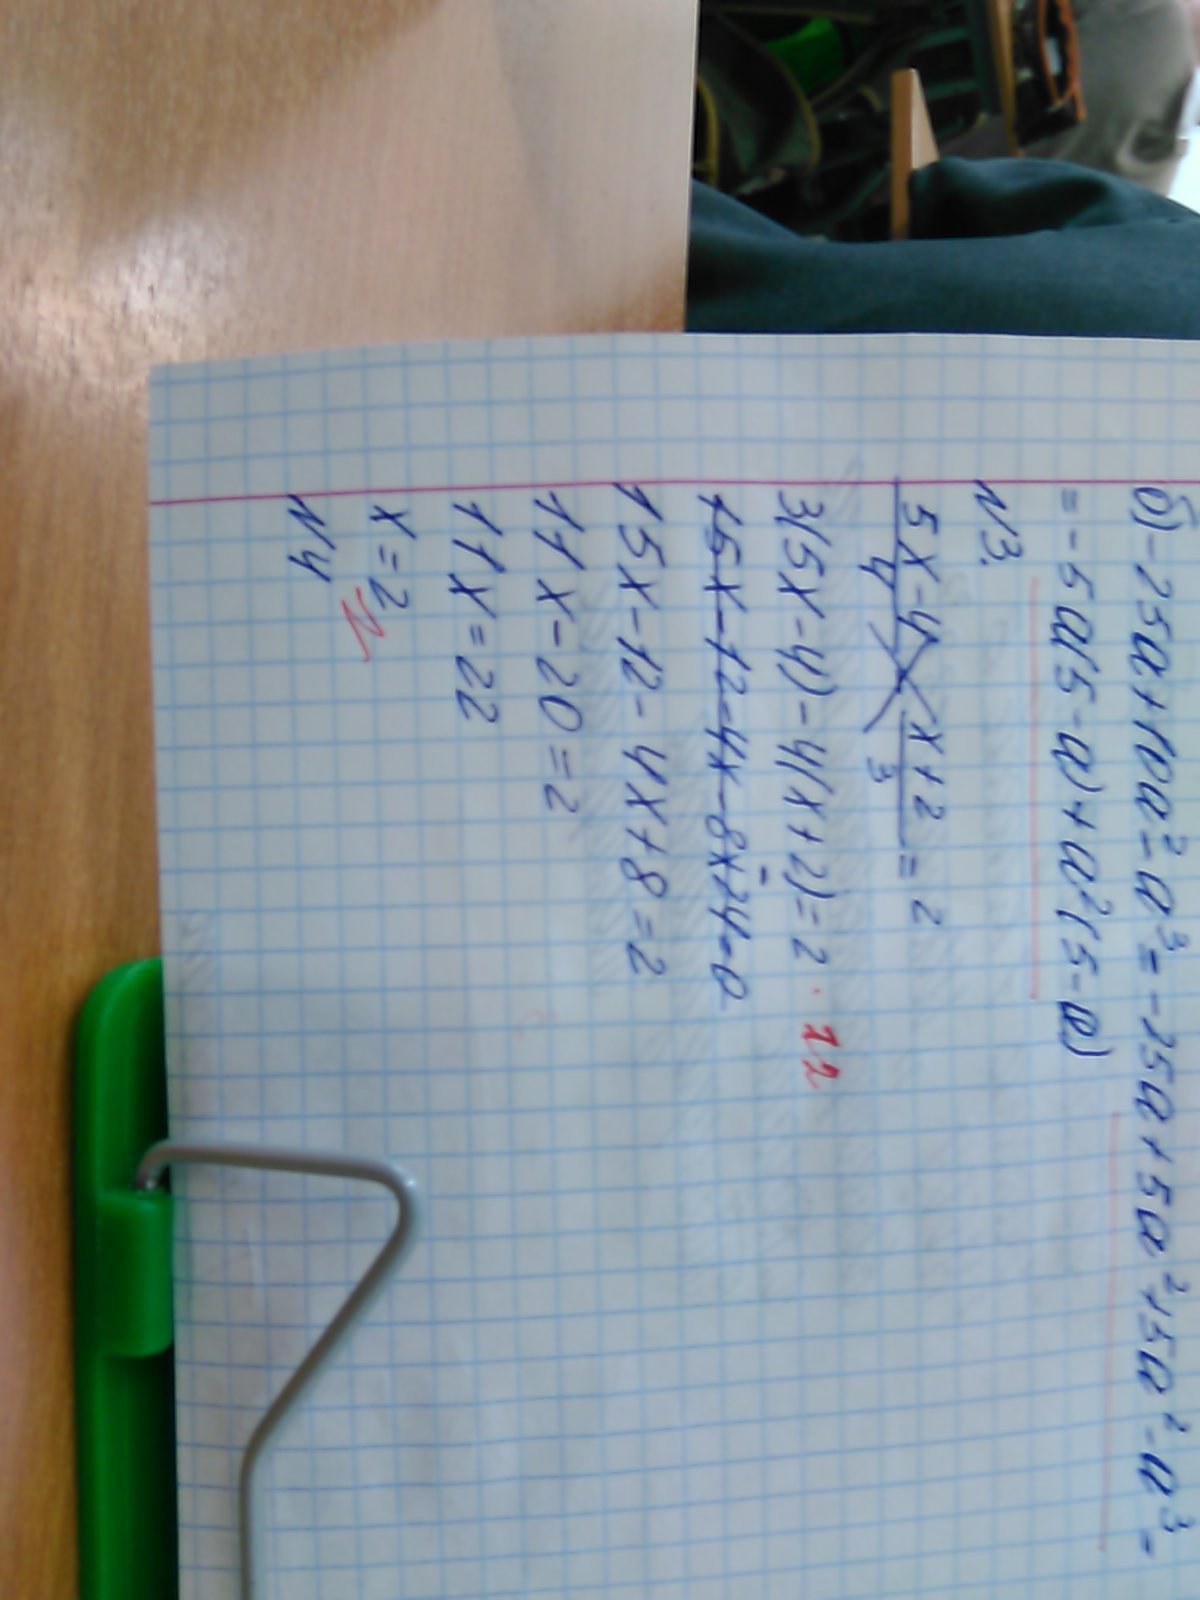 б) -25a+10a²-a³ = -25a+5a²+5a²-a³=
= -5a(5-a)+a²(5-a)
N3.
(5x-4)/4 - (x+2)/3 = 2
3(5x-4)-4(x+2)=2 · 12
15x-12-4x-8x+24=0
15x-12-4x+8=2
11x-20=2
11x=22
x=2
N4